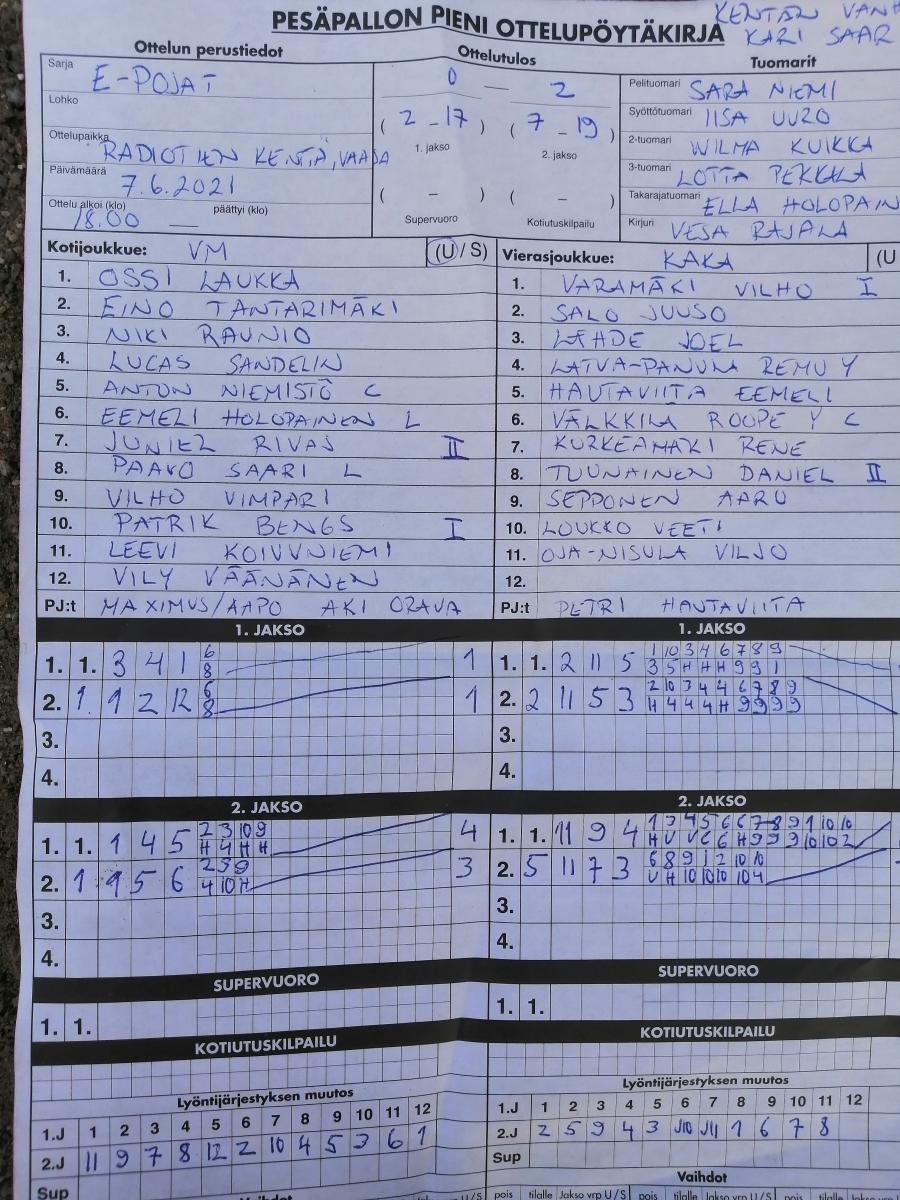 PESÄPALLON PIENI OTTELUPÖYTÄKIRJA
KENTÄN VANH
KARI SAAR
Ottelun perustiedot
Sarja E-POJAT
Lohko
Ottelupaikka RADIOTIEN KENTÄ, VAASA
Päivämäärä 7.6.2021
Ottelu alkoi (klo) 18.00 päättyi (klo) —
Ottelutulos
0 — 2
( 2 - 17 ) ( 7 - 19 )
1. jakso 2. jakso
( - ) ( - )
Supervuoro Kotiutuskilpailu
Tuomarit
Pelituomari SARA NIEMI
Syöttötuomari IISA UURO
2-tuomari WILMA KUIKKA
3-tuomari LOTTA PEKKALA
Takarajatuomari ELLA HOLOPAIN
Kirjuri VESA RAJALA
Kotijoukkue: VM (U/S)
1. OSSI LAUKKA
2. EINO TANTARIMÄKI
3. NIKI RAUNIO
4. LUCAS SANDELIN
5. ANTON NIEMISTÖ C
6. EEMELI HOLOPAINEN L
7. JUNIEL RIVAS II
8. PAAVO SAARI L
9. VILHO VIMPARI
10. PATRIK BENGS I
11. LEEVI KOIVUNIEMI
12. VILY VÄÄNÄNEN
PJ:t MAXIMUS/AAPO AKI ORAVA
Vierasjoukkue: KAKA (U
1. VARAMÄKI VILHO I
2. SALO JUUSO
3. LÄHDE JOEL
4. LATVA-PANULA REMU Y
5. HAUTAVIITA EEMELI
6. VÄLKKILÄ ROOPE Y C
7. KURKEAMÄKI RENE
8. TUUNAINEN DANIEL II
9. SEPPONEN AARO
10. LOUKKO VEETI
11. OJA-NISULA VILJO
12.
PJ:t PETRI HAUTAVIITA
1. JAKSO
1. 1. 3 4 1 6 1
8
2. 1 1 2 12 6 1
8
3.
4.
2. JAKSO
1. 1. 1 4 5 2 3 10 9 4
H 4 H H
2. 1 1 5 6 2 5 9 3
4 10 H
3.
4.
SUPERVUORO
1. 1.
KOTIUTUSKILPAILU
Lyöntijärjestyksen muutos
1.J 1 2 3 4 5 6 7 8 9 10 11 12
2.J 11 9 7 8 12 2 10 4 5 3 6 1
Sup
Vaihdot
1. JAKSO
1. 1. 2 11 5 1 10 3 4 6 7 8 9
3 5 H H H 9 9 1
2. 2 11 5 3 2 10 3 4 4 6 7 8 9
H 4 4 4 H 9 9 9 9
3.
4.
2. JAKSO
1. 1. 11 9 4 1 3 4 5 6 6 7 8 9 1 10 10
2. 5 11 7 3 6 8 9 1 2 10 10
U H 10 10 10 10 4
3.
4.
SUPERVUORO
1. 1.
KOTIUTUSKILPAILU
Lyöntijärjestyksen muutos
1.J 1 2 3 4 5 6 7 8 9 10 11 12
2.J 2 5 9 4 3 10 11 1 6 7 8
Sup
Vaihdot
pois tilalle Jakso vrp U/S pois tilalle Jakso vrp U/S pois tilalle